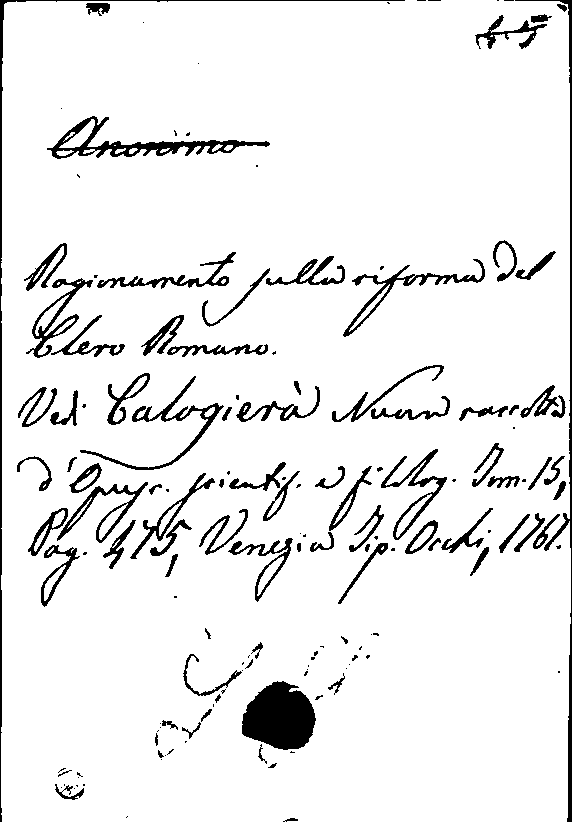 Anonimo
Ragionamento sulla riforma del
Clero Romano.
Vedi Calogierà Nuova raccolta
d'Opusc. scientif. e filolog. Tom. 15,
Pag. 475, Venezia Tip. Occhi, 1767.